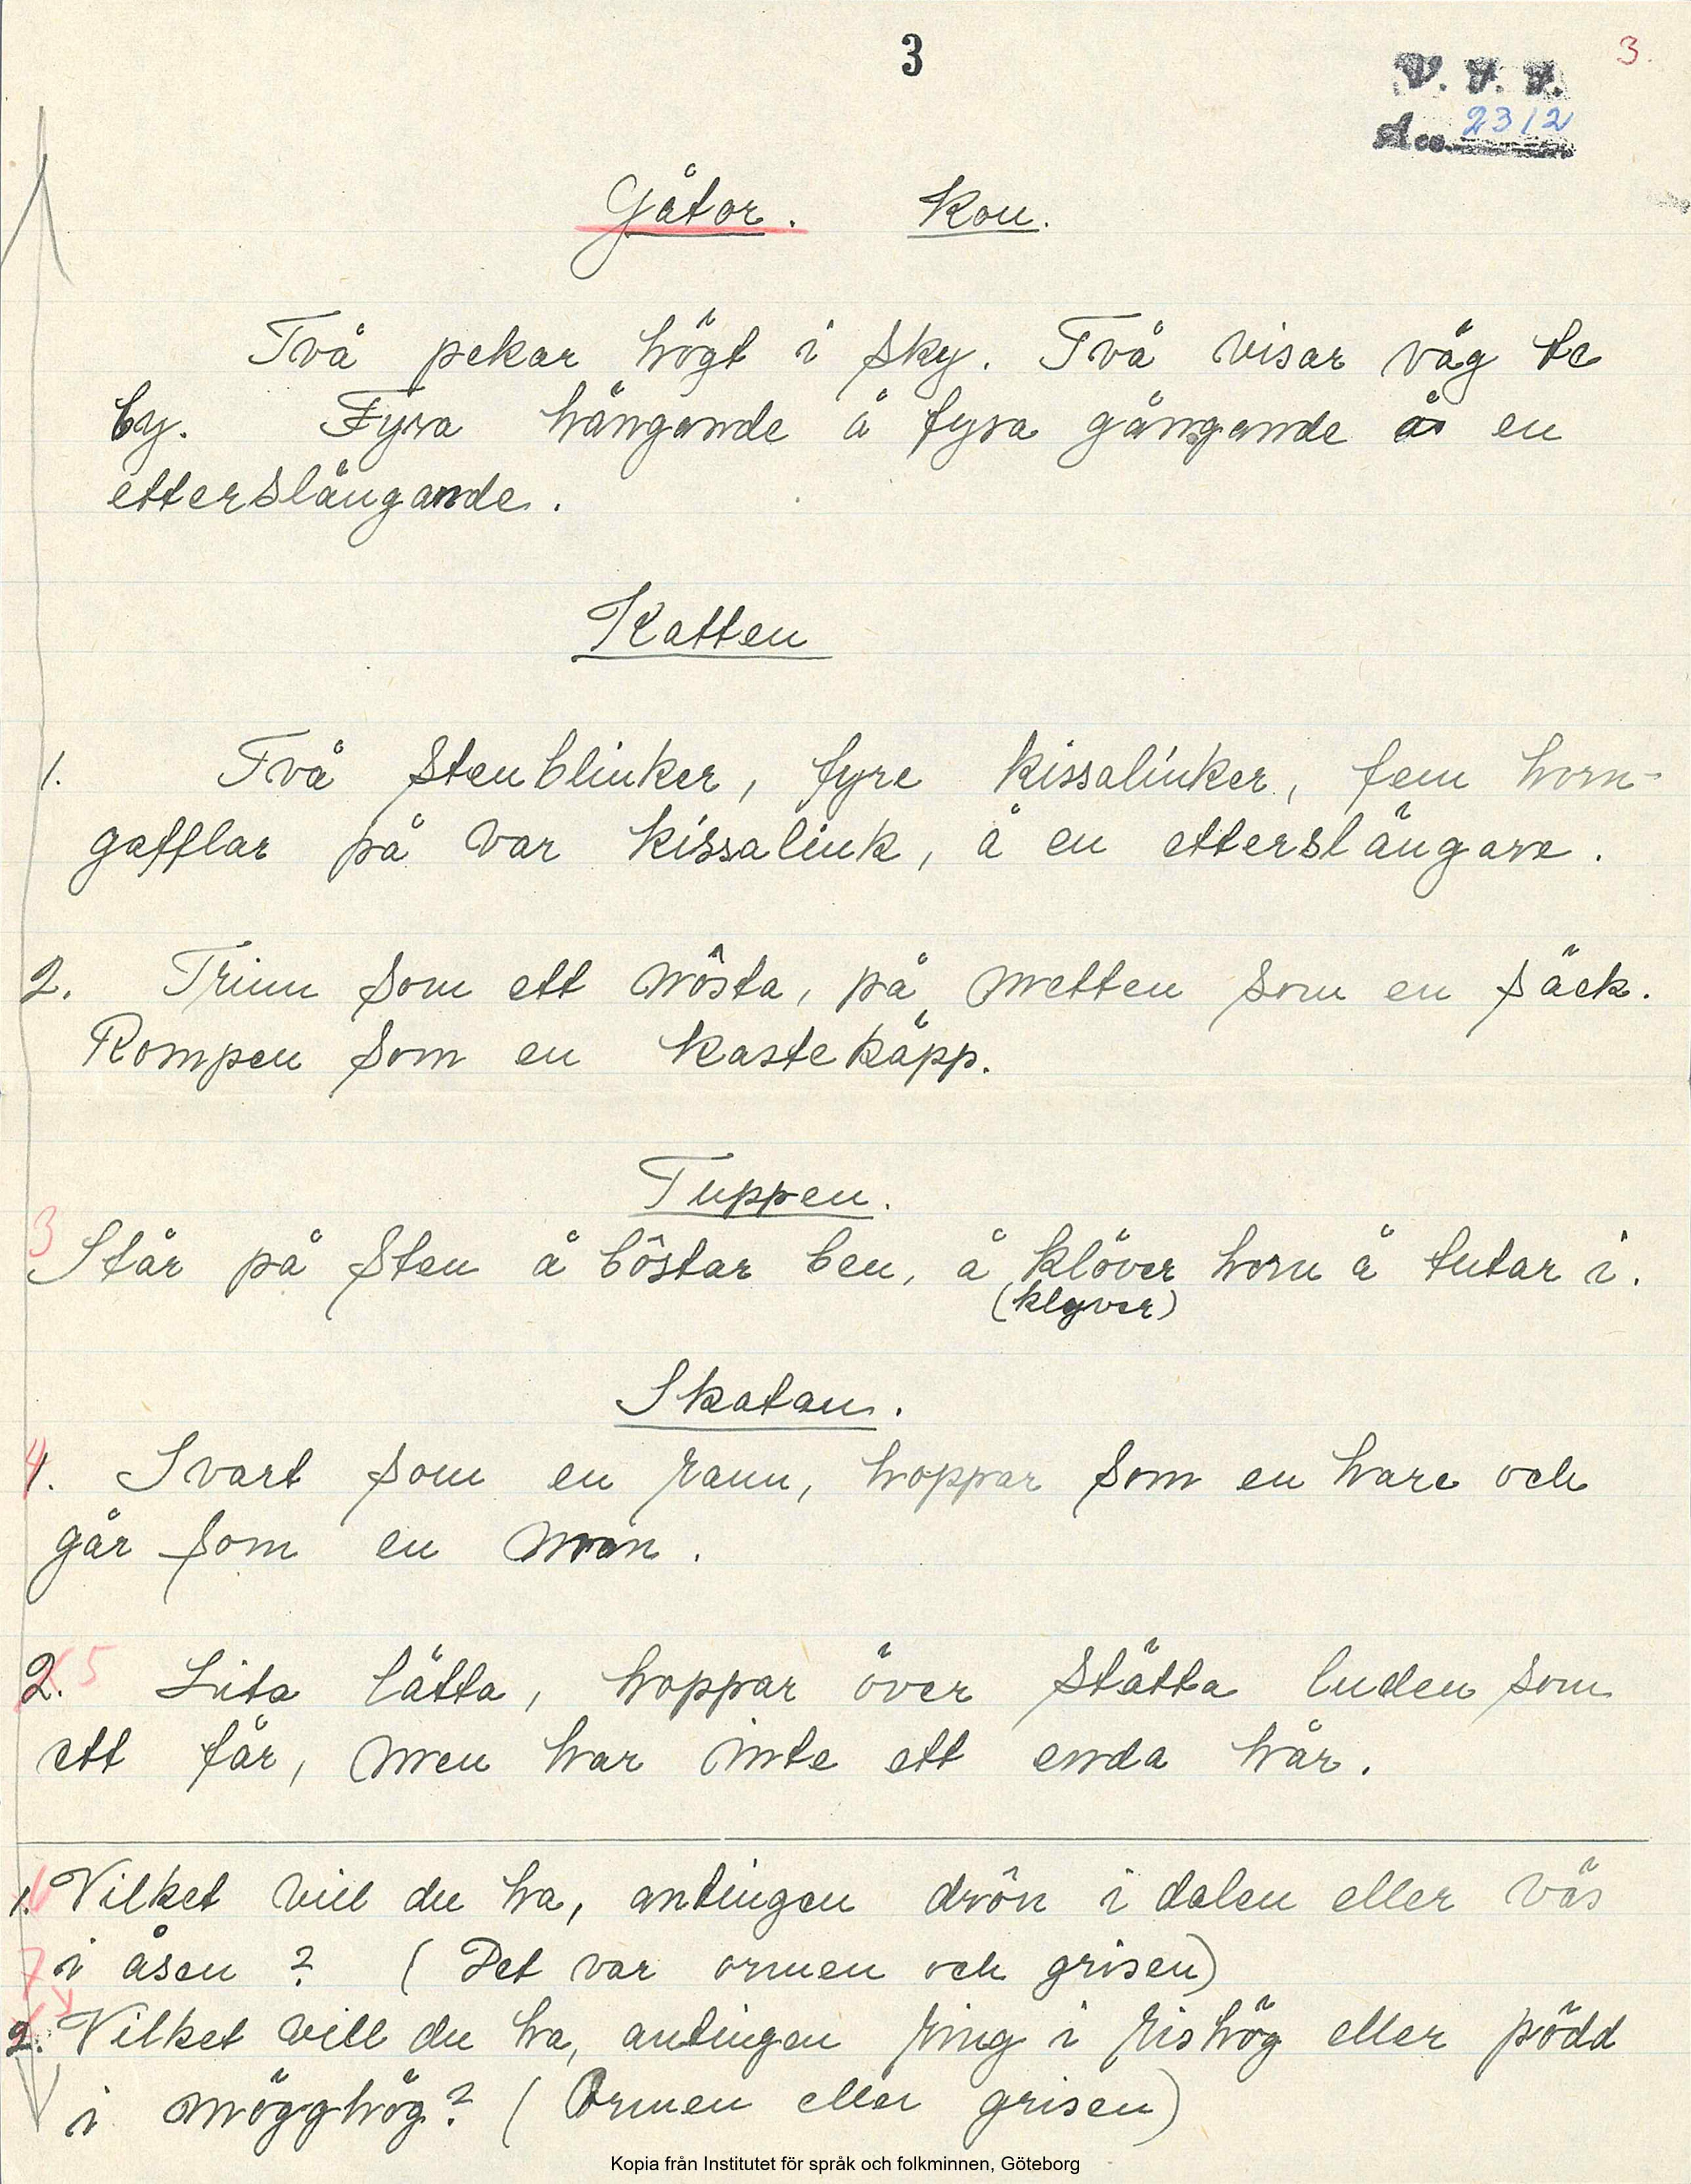 3
3.
V. F. F.
Acc. 2312
Gåtor. Kon.
Två pekar högt i sky. Två visar väg te
by. Fyra hängande å fyra gångande å en
etterslängande.
Katten
1. Två stenblinker, fyre kissalinker, fem horn-
gafflar på var kissalink, å en etterslängare.
2. Trinn som ett nôsta, på metten som en säck.
Rompen som en kastekäpp.
Tuppen.
3 Står på sten å bôstar ben, å klöver horn å tutar i.
(klyver)
Skatan.
4
1. Svart som en ramn, hoppar som en hare och
går som en man.
2. 5 Lita lätta, hoppar över stätta luden som
ett får, men har inte ett enda hår.
1. Vilket vill du ha, antingen drôn i dalen eller väs
i åsen? (Det var ormen och grisen)
7
2. Vilket vill du ha, antingen ring i rishög eller pödd
i mögghög? (Ormen eller grisen)
Kopia från Institutet för språk och folkminnen, Göteborg